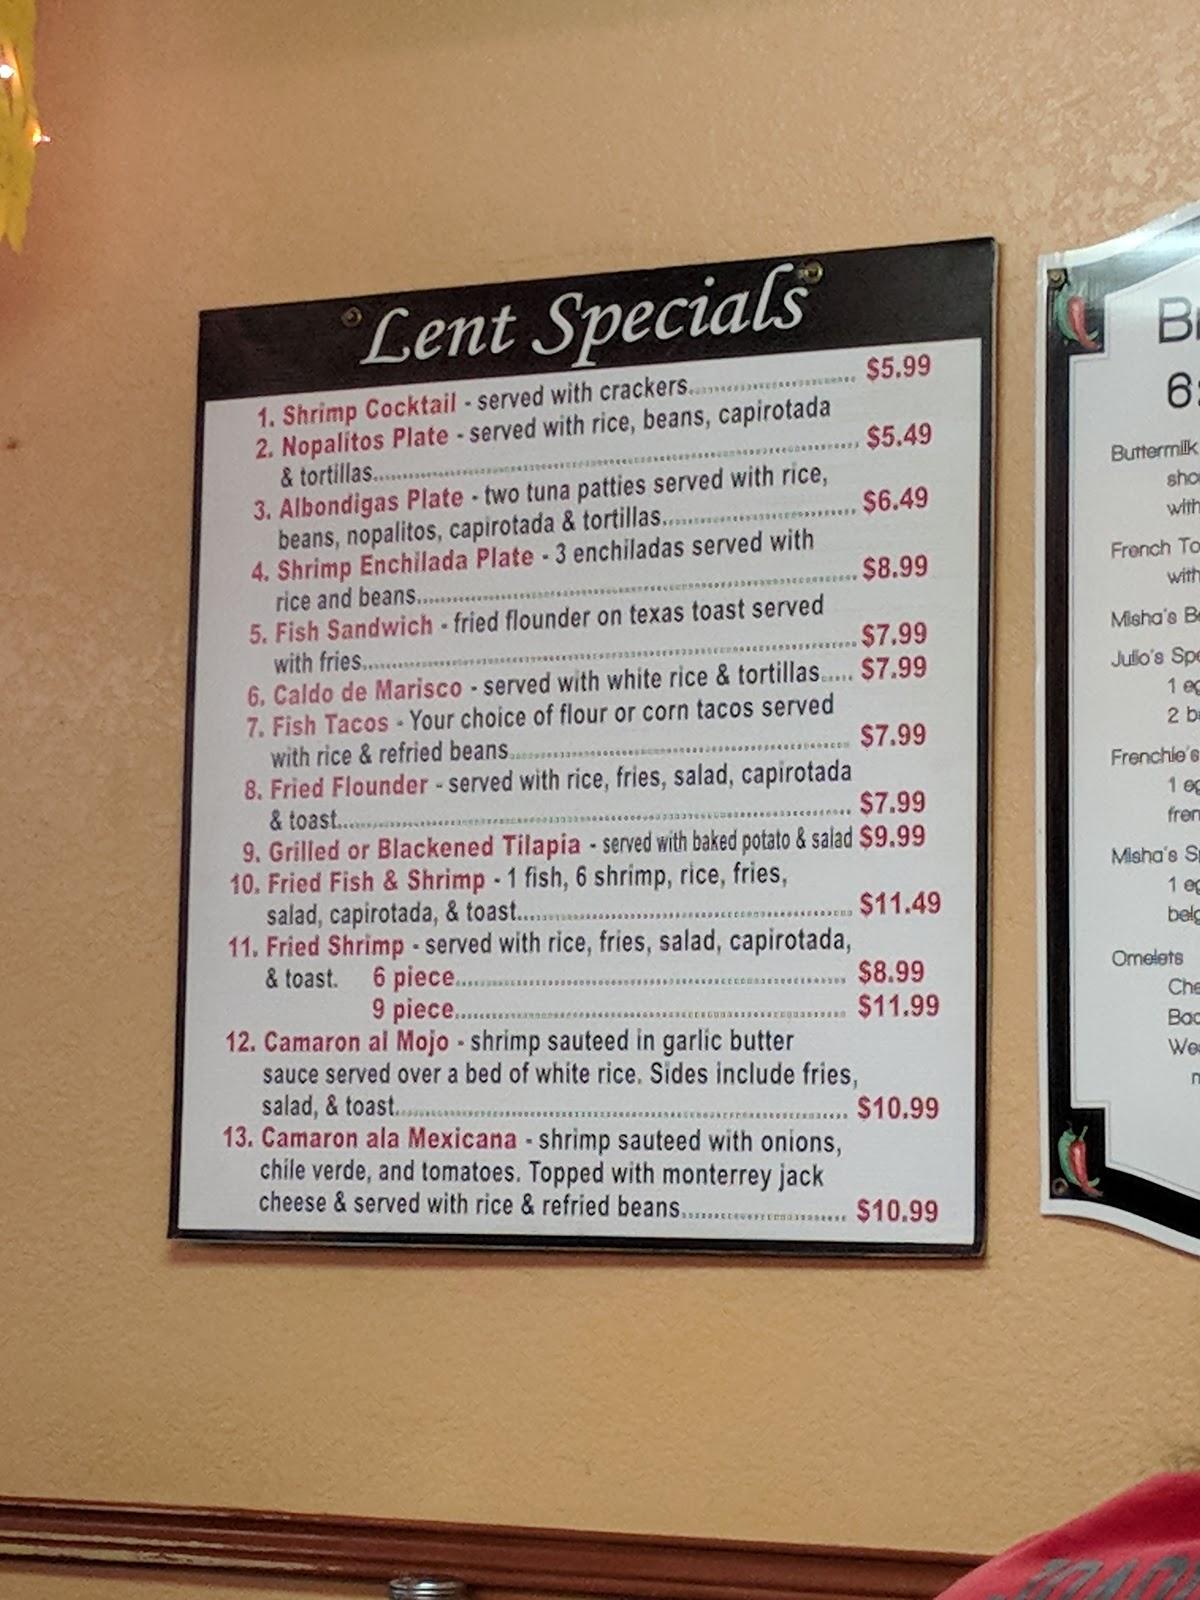 Lent Specials
1. Shrimp Cocktail - served with crackers............................ $5.99
2. Nopalitos Plate - served with rice, beans, capirotada
& tortillas............................ $5.49
3. Albondigas Plate - two tuna patties served with rice,
beans, nopalitos, capirotada & tortillas............................ $6.49
4. Shrimp Enchilada Plate - 3 enchiladas served with
rice and beans............................ $8.99
5. Fish Sandwich - fried flounder on texas toast served
with fries............................ $7.99
6. Caldo de Marisco - served with white rice & tortillas..... $7.99
7. Fish Tacos - Your choice of flour or corn tacos served
with rice & refried beans............................ $7.99
8. Fried Flounder - served with rice, fries, salad, capirotada
& toast............................ $7.99
9. Grilled or Blackened Tilapia - served with baked potato & salad $9.99
10. Fried Fish & Shrimp - 1 fish, 6 shrimp, rice, fries,
salad, capirotada, & toast............................ $11.49
11. Fried Shrimp - served with rice, fries, salad, capirotada,
& toast. 6 piece............................ $8.99
9 piece............................ $11.99
12. Camaron al Mojo - shrimp sauteed in garlic butter
sauce served over a bed of white rice. Sides include fries,
salad, & toast............................ $10.99
13. Camaron ala Mexicana - shrimp sauteed with onions,
chile verde, and tomatoes. Topped with monterrey jack
cheese & served with rice & refried beans............................ $10.99
Buttermilk
with
French
with
Misha's
Julio's
1
2
Frenchie's
1
Misha's
1
Omelets